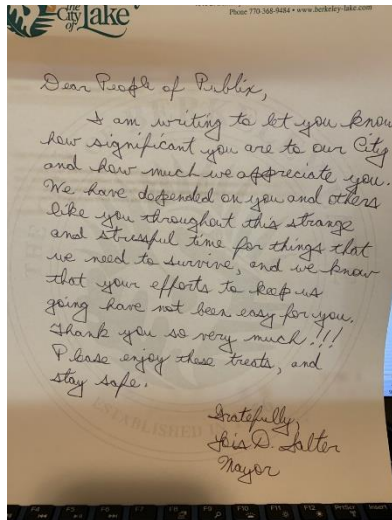 the
City
of
Lake
Phone 770-368-9484 • www.berkeley-lake.com
Dear People of Publix,
I am writing to let you know
how significant you are to our City
and how much we appreciate you.
We have depended on you and others
like you throughout this strange
and stressful time for things that
we need to survive, and we know
that your efforts to keep us
going have not been easy for you.
Thank you so very much!!!
Please enjoy these treats, and
stay safe.
Gratefully,
Lois D. Salter
Mayor
ESTABLISHED
F4 F5 F6 F7 F8 F9 F10 F11 F12 PrtScr Insert